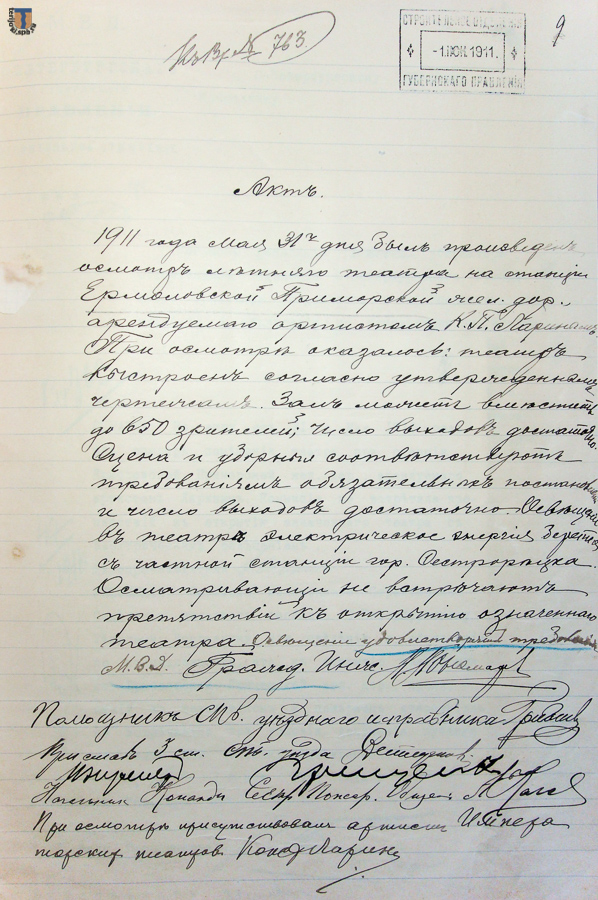 terijoki.spb.ru
Къ Вр. № 763.
СТРОИТЕЛЬНОЕ ОТДѢЛЕНІЕ
- 1. ІЮН. 1911.
ГУБЕРНСКАГО ПРАВЛЕНІЯ
9
Актъ.
1911 года мая 31го дня былъ произведенъ
осмотръ лѣтняго театра на станціи
Ермоловской Приморской жел. дор.
арендуемаго артистомъ К. П. Ларинымъ.
При осмотрѣ оказалось: театръ
выстроенъ согласно утвержденнымъ
чертежамъ. Залъ можетъ вмѣстить
до 650 зрителей; число выходовъ достаточно.
Сцена и уборныя соотвѣтствуютъ
требованіямъ обязательныхъ постановленій
и число выходовъ достаточно. Освѣщеніе
въ театрѣ электрическое энергія берется
съ частной станціи гор. Сестрорѣцка.
Осматривающіе не встрѣчаютъ
препятствій къ открытію означеннаго
театра. Освѣщеніе удовлетворяетъ требованіямъ
М.В.Д. Гражд. Инж.
Помощникъ СПб. уѣзднаго исправника
Приставъ 3 ст. СПб. уѣзда
Начальник Команды Сестр. Пожар.
При осмотрѣ присутствовалъ артистъ Импера
торскихъ театровъ Конст. Ларинъ